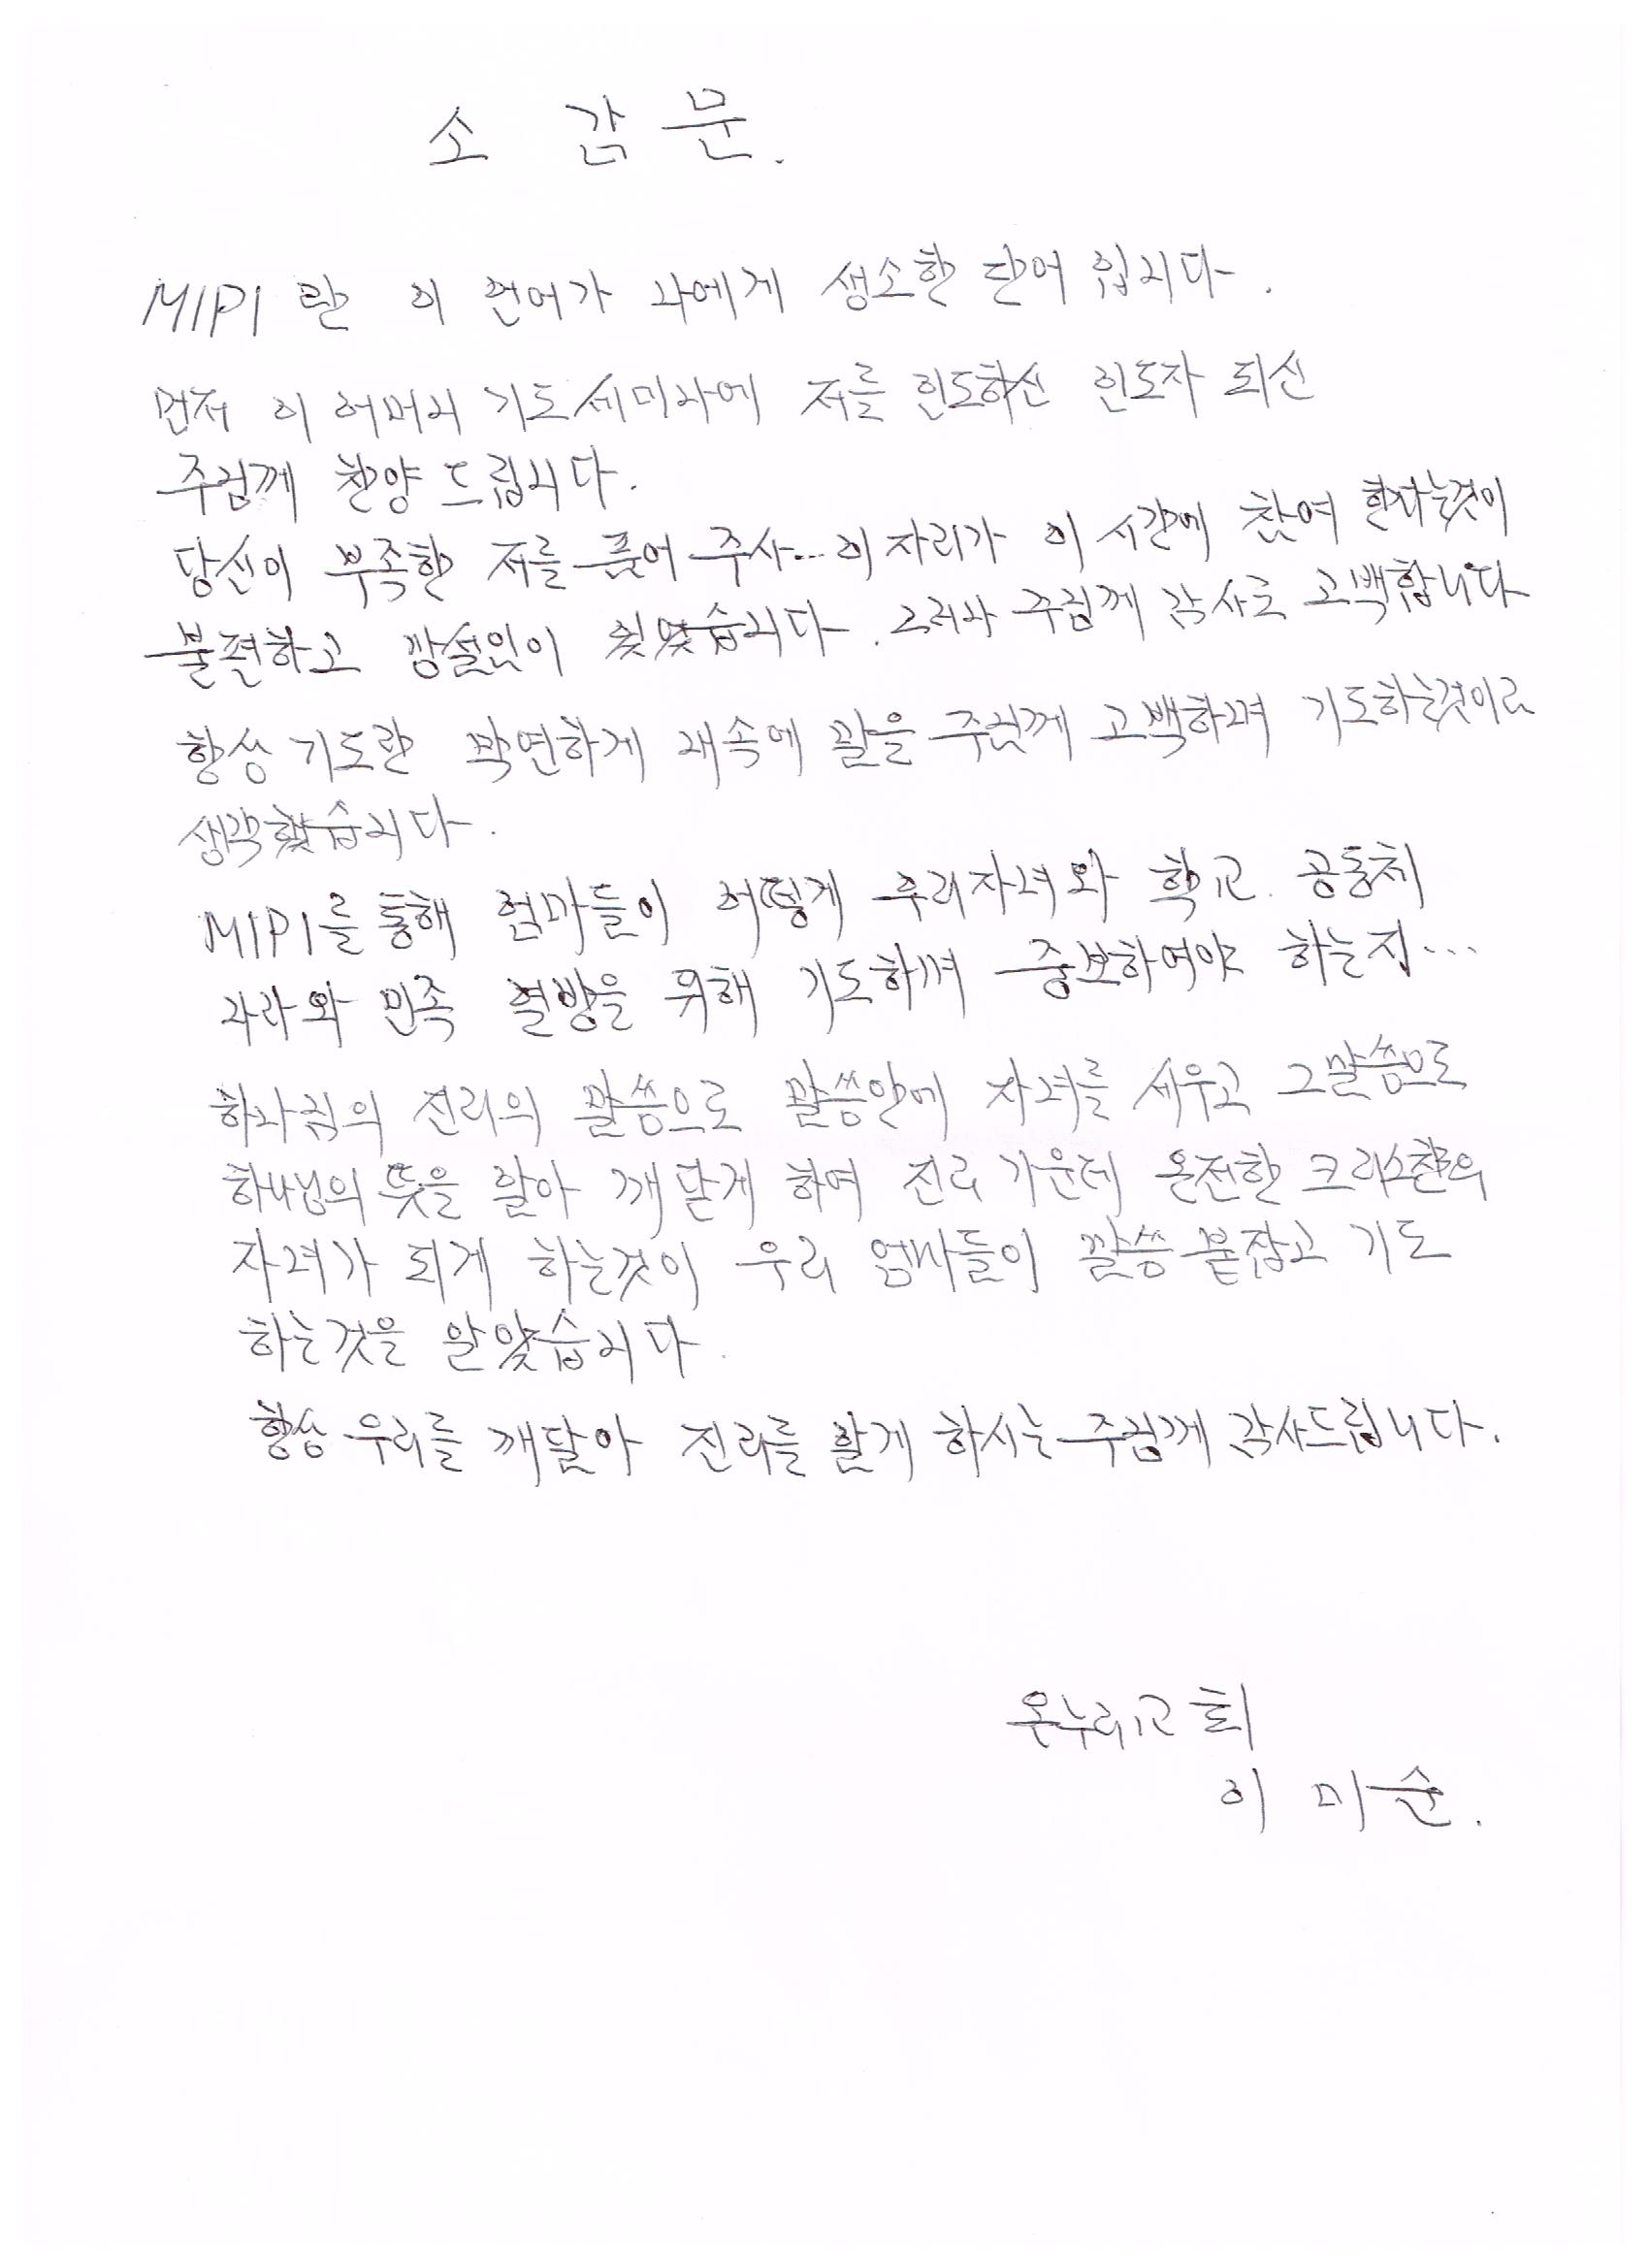 소 감 문.
MIPI 란 이 언어가 나에게 생소한 단어 입니다.
먼저 이 어머니 기도세미나에 저를 인도하신 인도자 되신
주님께 찬양 드립니다.
당신이 부족한 저를 품어 주사... 이 자리가 이 시간에 참여 한다는것이
불편하고 망설임이 있었습니다. 그러나 주님께 감사로 고백합니다
항상 기도란 막연하게 내속에 말을 주님께 고백하며 기도하는것이로
생각했습니다.
MIPI를 통해 엄마들이 어떻게 우리자녀와 학교. 공동체
나라와 민족 열방을 위해 기도하며 중보하여야 하는지...
하나님의 진리의 말씀으로 말씀안에 자녀를 세우고 그말씀으로
하나님의 뜻을 알아 깨닫게 하여 진리 가운데 온전한 크리스찬의
자녀가 되게 하는것이 우리 엄마들이 말씀 붙잡고 기도
하는것을 알았습니다.
항상 우리를 깨달아 진리를 알게 하시는 주님께 감사드립니다.
온누리교회
이 미순.